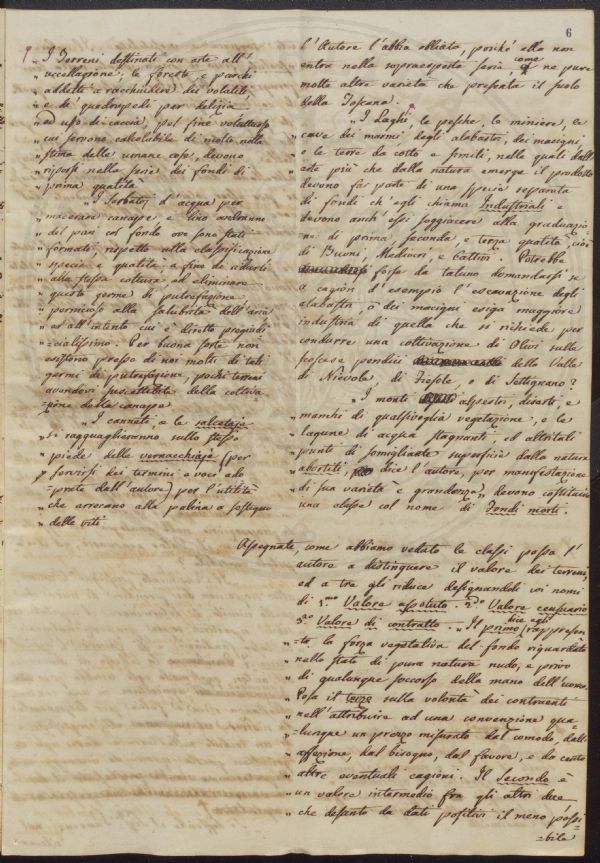 6
„ I Terreni destinati con arte all'
„ uccellagione, le foreste, e parchi
„ addetti a racchiudere dei volatili
„ e di quadrupedi per delizia
„ ed uso di caccia, pel fine voluttuoso
„ cui servono calcolubile di molto nella
„ stima delle umane cose, devono
„ riporsi nella serie dei fondi di
„ prima qualità
„ I Serbatoj d'acqua per
„ macerare canape e lino andranno
„ del pari col fondo ove sono stati
„ formati, rispetto alla classificazione
„ specie e qualità, a fine di ridurli
„ alla stessa coltura ed eliminare
„ questo germe di putrefazione
„ pernicioso alla salubrità dell'aria
„ ed all'intento cui è diretto pregiudi
„ =cialissimo. Per buona sorte non
esistono presso di noi molti di tali
germi di putrefazione, pochi terreni
avendovi suscettibili della coltiva
=zione della canape
„ I canneti, e le salcetaje
„ si ragguaglieranno sullo stesso
„ piede delle vernacchiaje (per
„ servirsi dei termini e voci ado
„ prate dall'autore) per l'utilità
„ che arrecano alla palina a sostegno
„ delle viti
l'Autore l'abbia obliata, poiché ella non
entra nella sopraesposta serie, come ne pure
molte altre varietà che presenta il suolo
della Toscana.
„ I Laghi, le pesche, le miniere, le
„ cave dei marmi, degli alabastri, dei macigni
„ e le terre da cotto e simili, nelle quali dall'
„ arte più che dalla natura emerge il prodotto
devono far parte di una specie separata
di fondi ch'egli chiama Industriali e
devono anch'essi soggiacere alla graduazio
=ne di prima, seconda, e terza qualità, cioè
di Buoni, Mediocri, e cattivi. Potrebbe
forse da taluno domandarsi se
a cagion d'esempio l'escavazione degli
alabastri, o dei macigni esiga maggiore
industria di quella che si richiede per
condurre una coltivazione di Olivi sulle
scoscese pendici della Valle
di Nievole, di Fiesole, o di Settignano?
„ I monti alpestri, diserti, e
„ manchi di qualsivoglia vegetazione, e le
„ lagune di acqua stagnanti, ed altrettali
„ punti di somigliante superficie dalla natura
„ abortiti, dice l'autore, per manifestazione
„ di sua varietà e grandezza, devono costituire
„ una classe col nome di Fondi morti.
Assegnate, come abbiamo veduto le classi passa l'
autore a distinguere il valore dei terreni,
ed a tre gli riduce designandoli coi nomi
di 1.mo Valore assoluto. 2.do Valore censuario
3.zo Valore di contratto. „ Il primo (dice egli) rappresen
„ =ta la forza vegetativa del fondo riguardato
„ nello stato di pura natura nudo, e privo
„ di qualunque soccorso della mano dell'uomo.
„ Posa il terzo sulla volontà dei contraenti
„ nell'attribuire ad una convenzione qua
„ =lunque un prezzo misurato dal comodo, dall'
„ affezione, dal bisogno, dal favore, e da cento
„ altre eventuali cagioni. Il Secondo è
„ un valore intermedio fra gli altri due
„ che desunto da dati positivi il meno possi
=bile